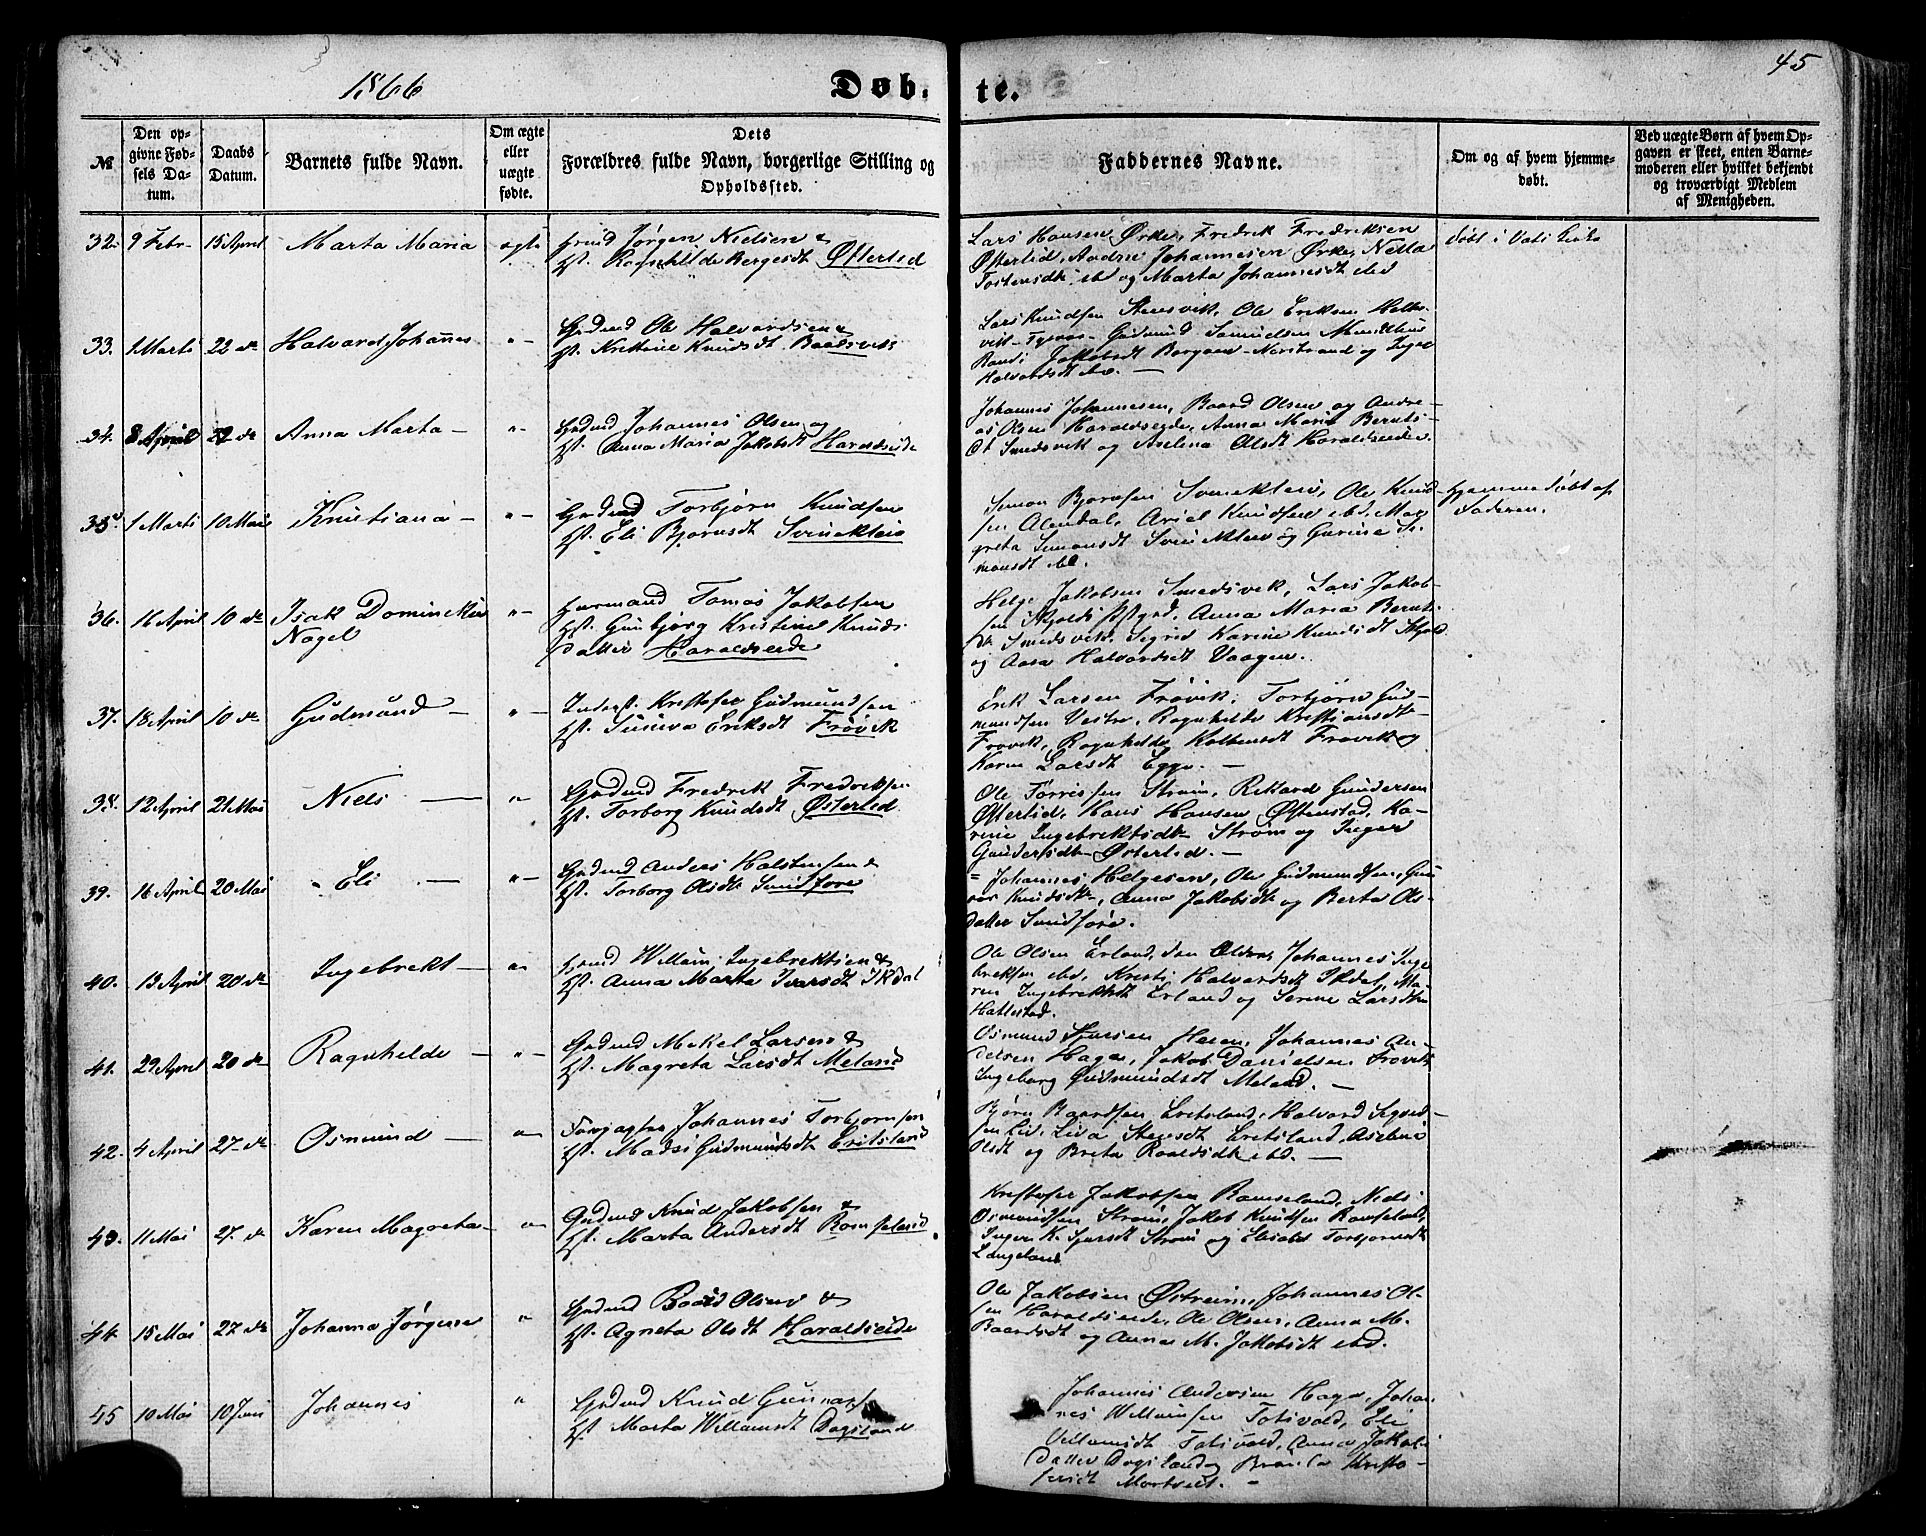 1866
Døb-
te.
45
№
Den op-
givne Fød-
sels Da-
tum.
Daabs
Datum.
Barnets fulde Navn.
Om ægte
eller
uægte
fødte.
Dets
Forældres fulde Navn, borgerlige Stilling og
Opholdssted.
Faddernes Navne.
Om og af hvem hjemme-
døbt.
Ved uægte Børn af hvem Op-
gaven er skeet, enten Barne-
moderen eller hvilket bekjendt
og troværdigt Medlem
af Menigheden.
32. 9 Febr. 15 April Marta Maria ægte
Jørgen Nielsen &
Ragnhilde Bergesdt Østerlid
Lars Hansen Ørke, Fredrik Fredriksen
Østerlid, Andru Johannesen Ørke, Nella
Tostensdt ibd og Marta Johannesdt ibd
døbt i Vats Kirke
33. 1 Marti 22 de Halvard Johannes "
Grdmd Ole Halvardsen &
Hst. Kristine Knudsdt Baadsvik
Lars Knudsen Stensvik, Ole Eriksen
Tysvær Gudmund Samuelsen
Jakobsdt Borgaen Nerstrand og Inger
Halvordsdt
34. 8 April 22 de Anna Marta "
Grdmd Johannes Olsen og
Hst. Anna Maria Jakobsdt Haraldseide
Johannes Johannesen, Baard Olsen og Andre-
as Olsen Haraldseide, Anna Maria Bernts-
dt Smedsvik og Aselina Olsdt Haraldseide.
35. 1 Marti 10 Mai Kristiana "
Grdmd Torbjørn Knudsen
Hst. Eli Bjørnsdt Svinekleiv
Simon Bjørnsen Svinekleiv, Ole Knud-
sen Alendal, Knudsen ibd. Ma-
greta Simonsdt Svinekleiv og Gurine Si-
monsdt ibd.
Hjemmedøbt af
Faderen.
36. 16 April 10 de Isak Dominekus
Nagel "
Huusmand Tomas Jakobsen
Hst. Gunbjørg Kristine Knuds-
datter Haraldseide
Helge Jakobsen Smedsvik, Lars Jakob-
sen Skjolds Prstgrd, Anna Maria Bernts-
dt Smedsvik, Segred Karine Knudsdt Skjold
og Aasa Halvardsdt Vaagen.
37. 18 April 10 de Gudmund "
Inderst. Kristofer Gudmundsen
Hst. Suneva Eriksdt Frøvik
Erik Larsen Frøvik, Torbjørn Gud-
mundsen Vestre, Ragnhilde Kristiansdt
Frøvik, Ragnhilde Kolbensdt Frøvik og
Karen Larsdt Egge.
38. 12 April 21 Mai Niels "
Grdmd Fredrik Fredriksen
Hst. Torborg Knudsdt Østerlid
Ole Torrisen Strøm, Rikard Gundersen
Østerlid, Hans Hansen Øftenstad, Ka-
rine Ingebrektsdt Strøm og Inger
Gundersdt Østerlid.
39. 16 April 20 Mai Eli "
Grdmd Anders Halstensen &
Hst. Torborg Olsdt Sundføre
Johannes Helgesen, Ole Gudmundsen, Gun-
vor Knudsdt, Anna Jakobsdt og Berta Ols-
datter Sundføre.
40. 13 April 20 de Ingebrekt "
Grdmd Willam Ingebrektsen &
Hst. Anna Marta Ivarsdt Ikdal
Ole Olsen Erland, den Eldre, Johannes Inge-
brektsen ibd, Kristi Halvardsdt Ikdal, Ma-
ren Ingebrektsdt Erland og Serine Larsdt
Hattestad.
41. 29 April 20 de Ragnhelde "
Grdmd Mekel Larsen &
Hst. Magreta Larsdt Meland
Osmund Hereen, Johannes An-
dersen Haga, Jakob Danielsen Frøvik
Ingeborg Gudmundsdt Meland.
42. 4 April 27 de Osmund "
Forpagter Johannes Torbjørnsen
Hst. Madsi Gudmundsdt Eritsland
Bjørn Baardsen Eritsland, Halvard
Liv, Liva Eritsland, Aseline
Olsdt og Breta Roaldsdt ibd.
43. 11 Mai 27 de Karen Magreta "
Grdmd Knud Jakobsen &
Hst. Marta Andersdt Ramseland
Kristofer Jakobsen Ramseland, Niels
Osmundsen Strøm, Jakob Knudsen Ramseland,
Inger K. Strøm og Elisabet Torbjørnsdt
Langeland
44. 15 Mai 27 de Johanna Jørgene "
Grdmd Baard Olsen &
Hst. Agneta Olsdt Haraldseide
Ole Jakobsen Østreim, Johannes Ol-
sen Haraldseide, Ole Olsen, Anna M.
Baardsdt og Anna M. Jakobsdt ibd.
45 10 Mai 10 Juni Johannes "
Grdmd Knud Gunnarsen
Hst. Marta Willamsdt Dagsland
Johannes Andersen Haga, Johan-
nes Willamsen Totsvald, Eli
Willamsdt Totsvald, Anna Jakobs-
datter Dagsland og Kristo-
fersdt Mortveit.